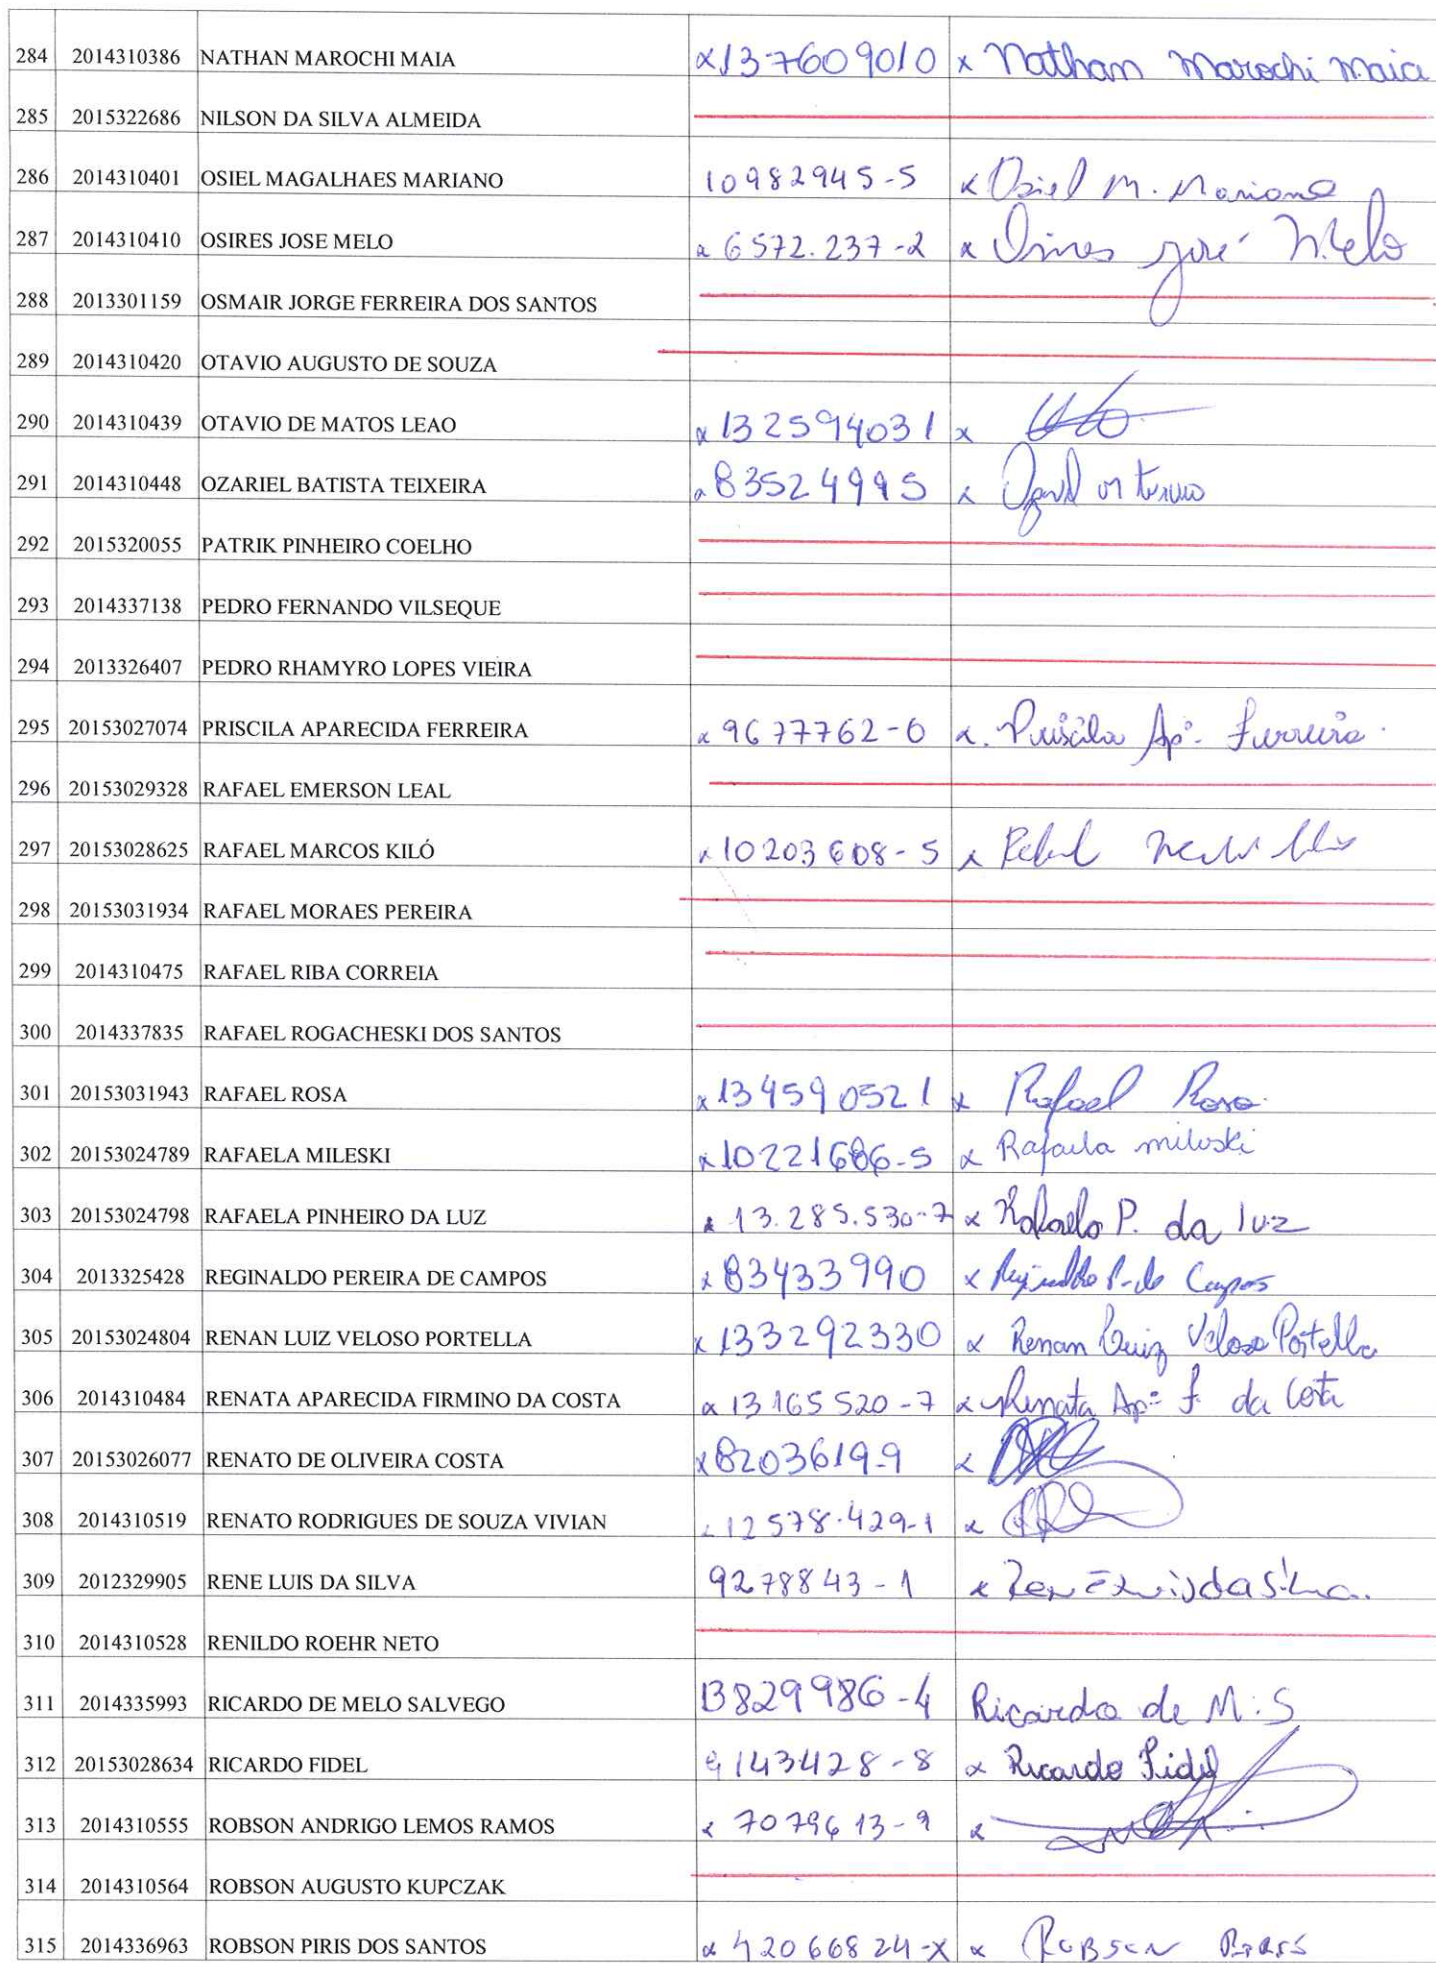 284 2014310386 NATHAN MAROCHI MAIA x 137609010 x Nathan Marochi Maia
285 2015322686 NILSON DA SILVA ALMEIDA
286 2014310401 OSIEL MAGALHAES MARIANO 10982945-5 x Osiel M. Mariano
287 2014310410 OSIRES JOSE MELO x 6572.237-2 x Osires José Melo
288 2013301159 OSMAIR JORGE FERREIRA DOS SANTOS
289 2014310420 OTAVIO AUGUSTO DE SOUZA
290 2014310439 OTAVIO DE MATOS LEAO x 132594031 x
291 2014310448 OZARIEL BATISTA TEIXEIRA x 83524995 x
292 2015320055 PATRIK PINHEIRO COELHO
293 2014337138 PEDRO FERNANDO VILSEQUE
294 2013326407 PEDRO RHAMYRO LOPES VIEIRA
295 20153027074 PRISCILA APARECIDA FERREIRA x 9677762-0 x. Priscila Apª. Ferreira.
296 20153029328 RAFAEL EMERSON LEAL
297 20153028625 RAFAEL MARCOS KILÓ x 10203608-5 x
298 20153031934 RAFAEL MORAES PEREIRA
299 2014310475 RAFAEL RIBA CORREIA
300 2014337835 RAFAEL ROGACHESKI DOS SANTOS
301 20153031943 RAFAEL ROSA x 134590521 x Rafael Rosa.
302 20153024789 RAFAELA MILESKI x 10221686-5 x Rafaela mileski
303 20153024798 RAFAELA PINHEIRO DA LUZ x 13.285.530-7 x Rafaela P. da luz
304 2013325428 REGINALDO PEREIRA DE CAMPOS x 83433990 x Reginaldo P. de Campos
305 20153024804 RENAN LUIZ VELOSO PORTELLA x 133292330 x Renan Luiz Veloso Portella
306 2014310484 RENATA APARECIDA FIRMINO DA COSTA x 13165520-7 x Renata Apª F. da Costa
307 20153026077 RENATO DE OLIVEIRA COSTA x 8203619-9 x
308 2014310519 RENATO RODRIGUES DE SOUZA VIVIAN x 12578.429-1 x
309 2012329905 RENE LUIS DA SILVA 9278843-1 x Rene Luis da Silva.
310 2014310528 RENILDO ROEHR NETO
311 2014335993 RICARDO DE MELO SALVEGO 13829986-4 Ricardo de M. S
312 20153028634 RICARDO FIDEL 9143428-8 x Ricardo Fidel
313 2014310555 ROBSON ANDRIGO LEMOS RAMOS x 7079613-9 x
314 2014310564 ROBSON AUGUSTO KUPCZAK
315 2014336963 ROBSON PIRIS DOS SANTOS x 42066824-X x Robson Piris